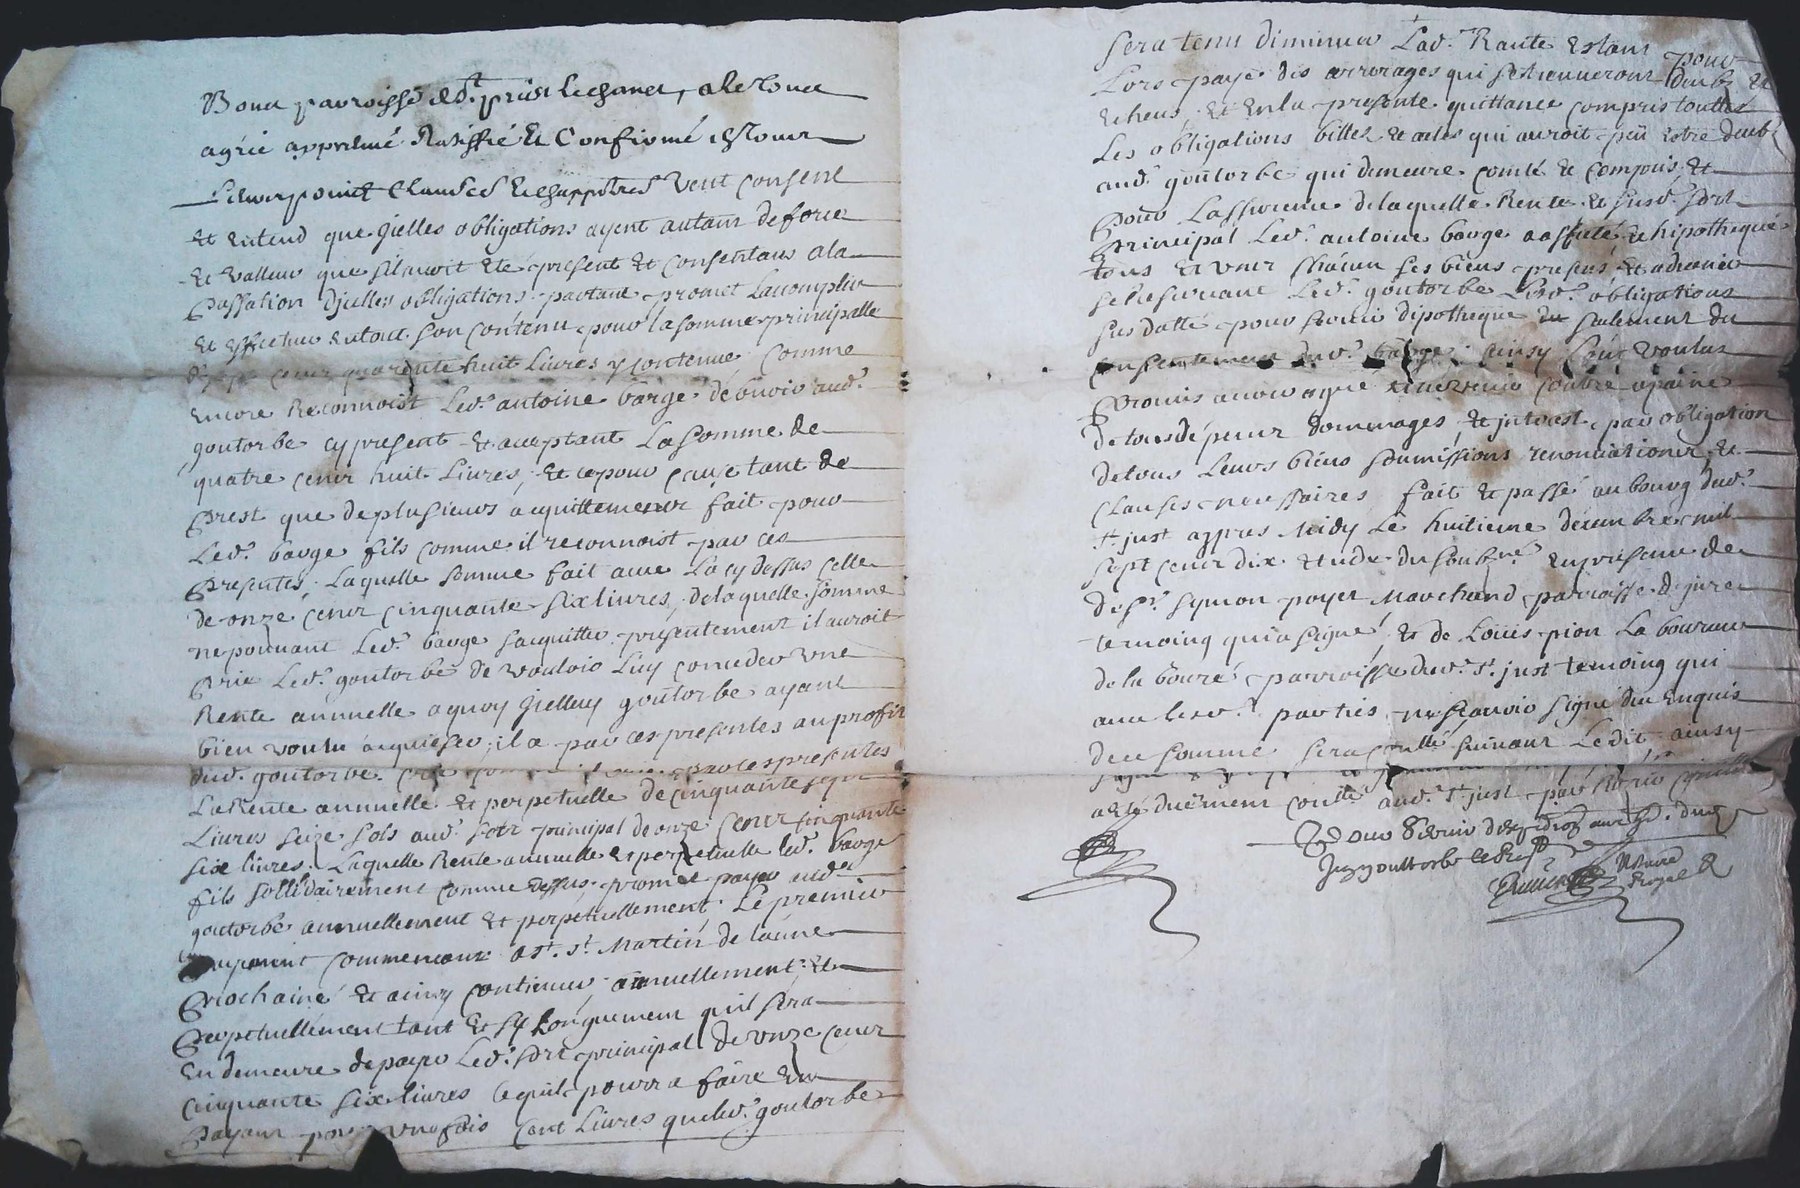 Bouer parroisse de St priest Lechanet, a Leloner
agrée appreuvé Rattiffié et Confirmé et Loüer
Leur point Clauses et chappitres veut consent
et entend que jcelles obligations ayent autant de force
et valleur que sil auoit eté present et consentant a la
Passation djcelles obligations partant promet Lacomplir
et effectuer entout son contenu pour la somme principalle
cent quarente huit Liures y contenue Comme
encore Reconnoist Led. antoine barge déuoir aud.
goutorbe cy present et acceptant La somme de
quatre cent huit Liures, et ce pour cause tant de
Prest que de plusieurs acquittement fait pour
Led. barge fils comme il reconnoist par ces
Presentes, Laquelle somme fait auec La cy dessus celle
de onze cent cinquante six liures, de laquelle somme
ne pouuant Led. barge sacquitter presentement il auroit
Prié Led. goutorbe de vouloir Luy conceder vne
Rente annuelle a quoy jcelluy goutorbe ayant
bien voulu acquiescer, il a par ces presentes au profit
dud. goutorbe par ces presentes
La Rente annuelle et perpetuelle de cinquante sept
Liures seize sols aud. sort principal de onze cent cinquante
six liures, Laquelle Rente annuelle et perpetuelle led. barge
fils sollidairement comme dessus promet payer aud.
goutorbe annuellement et perpetuellement. Le premier
payement commencant a St. Martin de lannée
Prochaine et ainsy continuer annuellement et
Perpetuellement tant et sy Longuement quil sera
En demeure de payer Led. sort principal de onze cent
cinquante six liures ce quil pourra faire en
Payant pour vne fois cent Liures que led. goutorbe
sera tenu diminuer Lad. Rante estant pour
Lors payé des arrerages qui se trouueront deub et
echeus, et en la presente quittance compris touttes
Les obligations billes et actes qui auroit pû estre deub
aud. goutorbe qui demeure comté et compris et
Pour Lassurence de laquelle Rente et susd. sort
Principal Led. antoine barge a affecté et hipothequé
tous et vn chacun ses biens presens et aduenir
se reseruant Led. goutorbe Lesd. obligations
sus datté pour seruir dipotheque seulement du
consentement dud. barge. ainsy Lont voulus
Promis auoir agré contre a paine
de tous dépens dommages et jnterest par obligation
de tous Leurs biens soumissions renonciations et
Clauses necessaires fait et passé au bourg dud.
St. just appres Midy Le huitieme décembre mil
sept cent dix et du soubné en presence de
de Sr. symon poyet Marchand parroisse de jure
temoing qui a signé et de Loüis pion Laboureur
de la bouré parroisse dud. St. just temoing qui
auec lesd. parties ne scauoir signé de ce enquis
de ce sommé sera conllé suiuant Ledit ainsy
a eté duëment conllé aud. St. just par
Pour
Jay goutorbe
Notaire
Royal